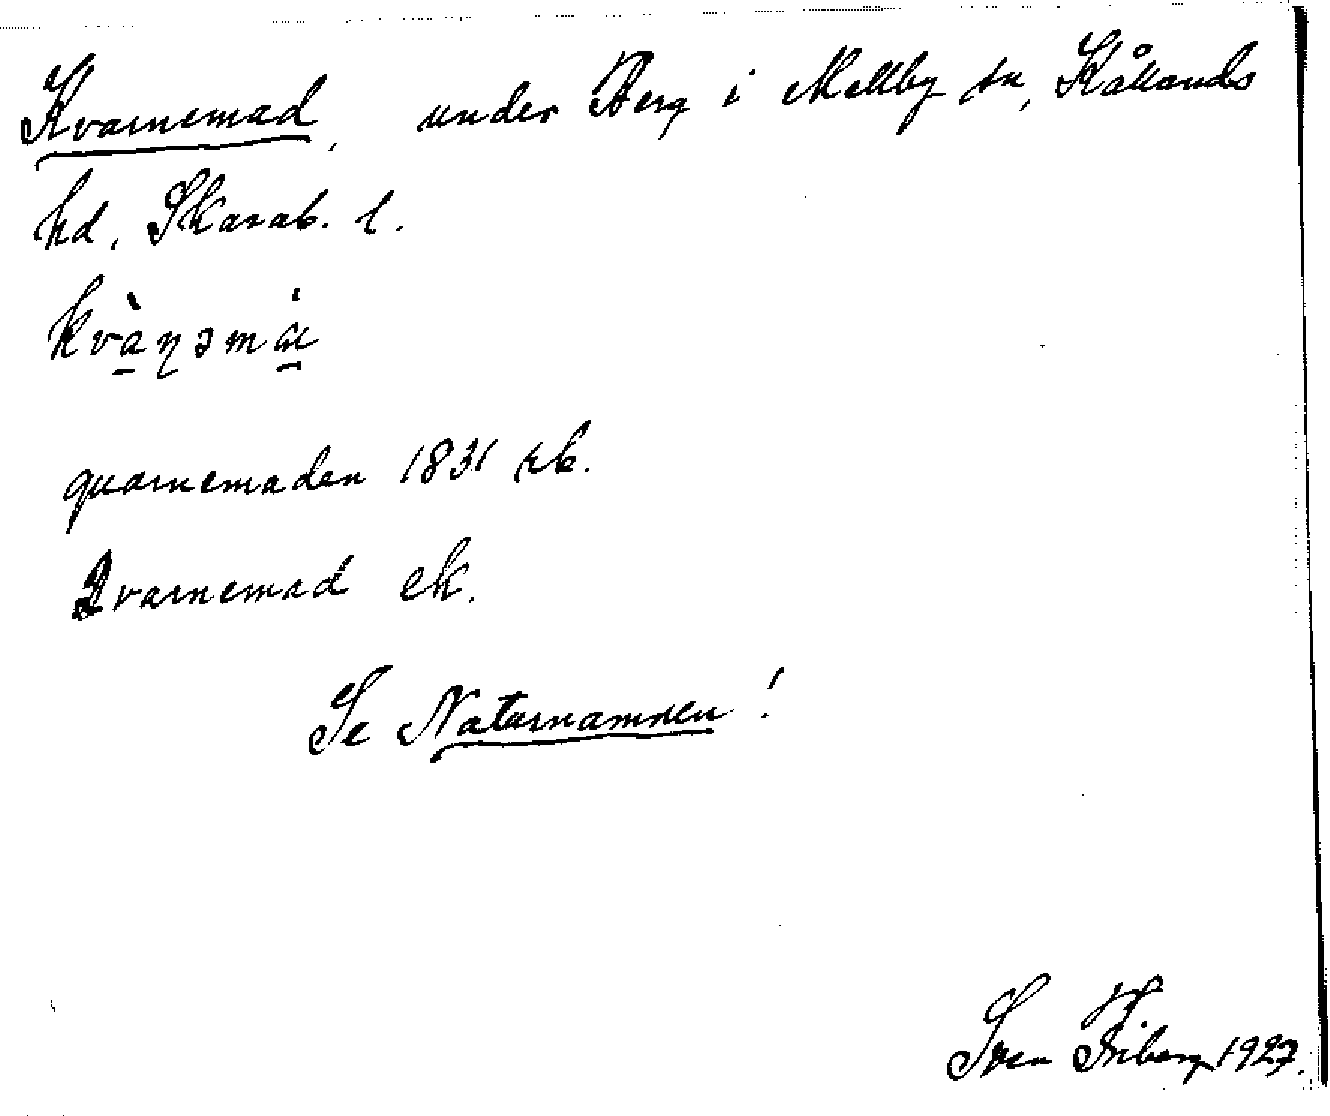 Kvarnemad, under Berg i Mellby sn, Kållands
hd, Skarab. l.
quarnemaden 1831 kb.
Qvarnemad ek.
Se Naturnamnen!
Sven Friberg 1927.